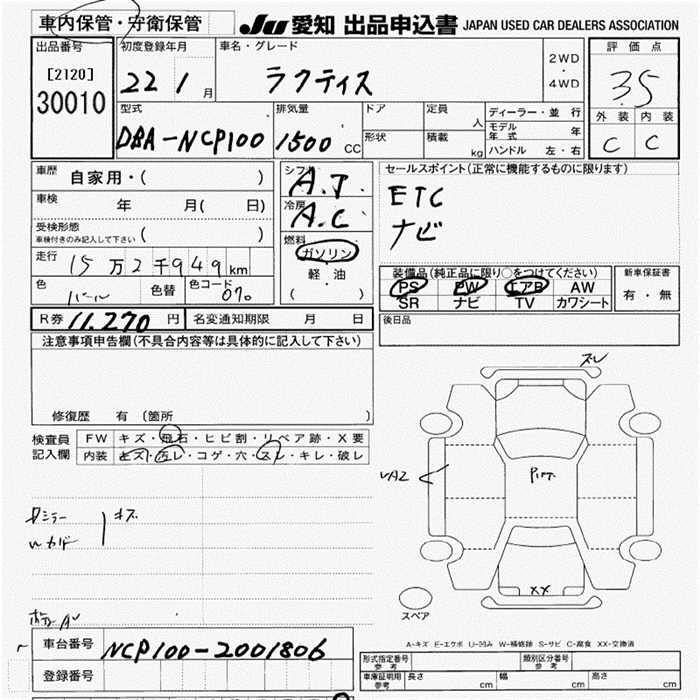 車内保管・守衛保管 JU 愛知 出品申込書 JAPAN USED CAR DEALERS ASSOCIATION
出品番号 初度登録年月 車名・グレード 2WD・4WD 評価点
[2120] 22 1 月 ラクティス 3.5
30010 型式 排気量 ドア 定員 人 ディーラー・並行 外装 内装
DBA-NCP100 1500 CC 形状 積載 kg モデル年式 年 C C
ハンドル 左・右
車歴 自家用・( ) シフト A.T セールスポイント(正常に機能するものに限ります)
車検 年 月( 日) 冷房 A.C ETC
受検形態 ( ) ナビ
車検付きのみ記入して下さい
燃料 ガソリン
走行 15万2千949km 軽・油 装備品(純正品に限り○をつけてください) 新車保証書
色 パール 色替 色コード 070 ( ) PS PW エアB AW 有・無
SR ナビ TV カワシート
R券 11,270 円 名変通知期限 月 日 後日品
注意事項申告欄(不具合内容等は具体的に記入して下さい)
修復歴 有 (箇所
検査員 FW キズ・飛石・ヒビ割・リペア跡・X要
記入欄 内装 キズ・汚レ・コゲ・穴・スレ・キレ・破レ
スレ
XX
スペア
A-キズ E-エクボ U-凹み W-補修跡 S-サビ C-腐食 XX-交換済
車台番号 NCP100-2001806
登録番号
形式指定番号 参考 類別区分番号 参考
車庫証明用 参考 長さ cm 幅 cm 高さ cm